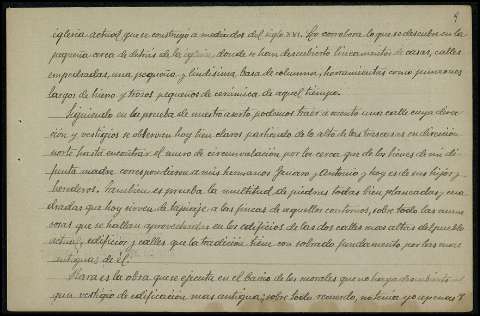 9
iglesia actual que se construyó a mediados del siglo XVI. Lo corrobora lo que se descubre en la
pequeña cerca de detrás de la iglesia, donde se han descubierto lineamientos de casas, calles
empedradas, una pequeña y lindísima, basa de columna, herramientas como punzones
largos de hierro y trozos pequeños de cerámica de aquel tiempo.
Siguiendo en la prueba de nuestro aserto podemos traer a cuento una calle cuya direc-
ción y vestigios se observan hoy bien claros partiendo de lo alto de las frescuras en dirección
norte hasta encontrar el muro de circunvalación por la cerca que de los bienes de mi di-
funta madre correspondieron a mis hermanos Jenaro y Antonio y hoy es de sus hijos y
herederos. También es prueba la multitud de piedras todas bien planeadas y cua-
dradas que hoy sirven de tapiaje a las fincas de aquellos contornos, sobre todo las nume-
rosas que se hallan aprovechadas en los edificios de las dos calles mas altas del pueblo
actual, edificios y calles que la tradición tiene con sobrado fundamento por los mas
antiguos de él.
Rara es la obra que se ejecuta en el barrio de los morales que no haya descubierto al-
gun vestigio de edificación mas antigua; sobre todo recuerdo, no tenia yo apenas 8